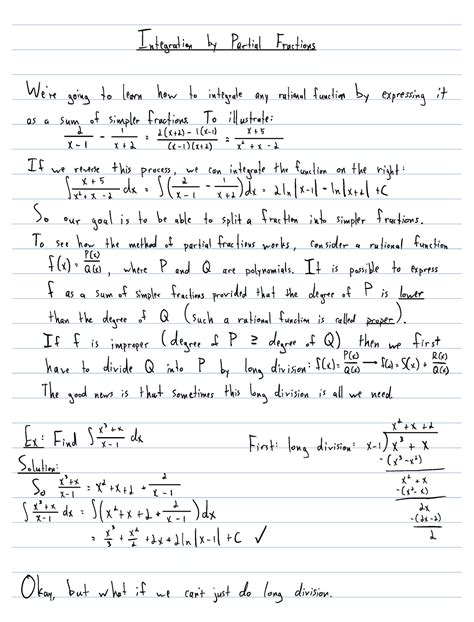 Integration by Partial Fractions
We're going to learn how to integrate any rational function by expressing it
as a sum of simpler fractions. To illustrate:
2/(x-1) - 1/(x+2) = (2(x+2) - 1(x-1))/((x-1)(x+2)) = (x+5)/(x²+x-2)
If we reverse this process, we can integrate the function on the right:
∫ (x+5)/(x²+x-2) dx = ∫(2/(x-1) - 1/(x+2))dx = 2ln|x-1| - ln|x+2| + C
So our goal is to be able to split a fraction into simpler fractions.
To see how the method of partial fractions works, consider a rational function
f(x) = P(x)/Q(x), where P and Q are polynomials. It is possible to express
f as a sum of simpler fractions provided that the degree of P is lower
than the degree of Q (such a rational function is called proper).
If f is improper (degree of P ≥ degree of Q) then we first
have to divide Q into P by long division: f(x) = P(x)/Q(x) → f(x) = S(x) + R(x)/Q(x)
The good news is that sometimes this long division is all we need.
Ex: Find ∫ (x³+x)/(x-1) dx
Solution:
So (x³+x)/(x-1) = x²+x+2+ 2/(x-1)
∫ (x³+x)/(x-1) dx = ∫(x²+x+2+ 2/(x-1))dx
= x³/3 + x²/2 + 2x+2ln|x-1|+C ✓
First: long division:
x²+x+2
x-1)x³ + x
-(x³-x²)
x²+x
-(x²-x)
2x
-(2x-2)
2
Okay, but what if we can't just do long division.